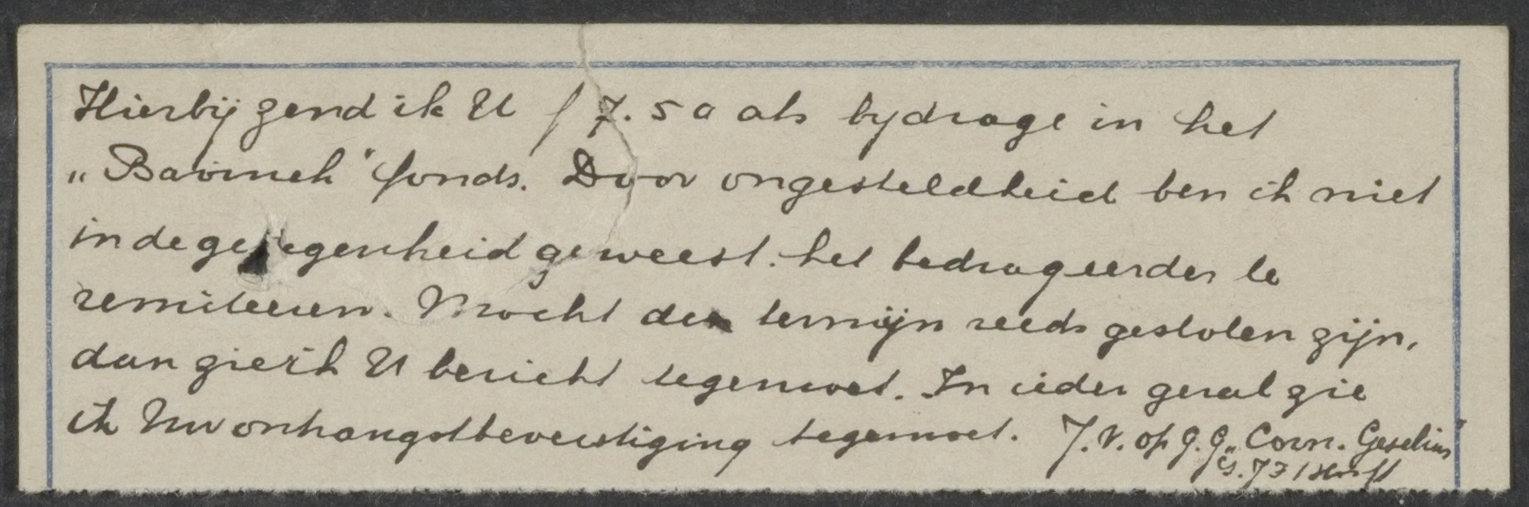 Hierbij zend ik U ƒ 7.50 als bydrage in het
„Bavinck" fonds. Door ongesteldheid ben ik niet
in de gelegenheid geweest het bedrag eerder te
remiteeren. Mocht de termijn reeds gesloten zijn,
dan zie ik U bericht tegemoet. In ieder geval zie
ik Uw ontvangstbevestiging tegemoet. J. v. op g. g. „Corn. Geselius"